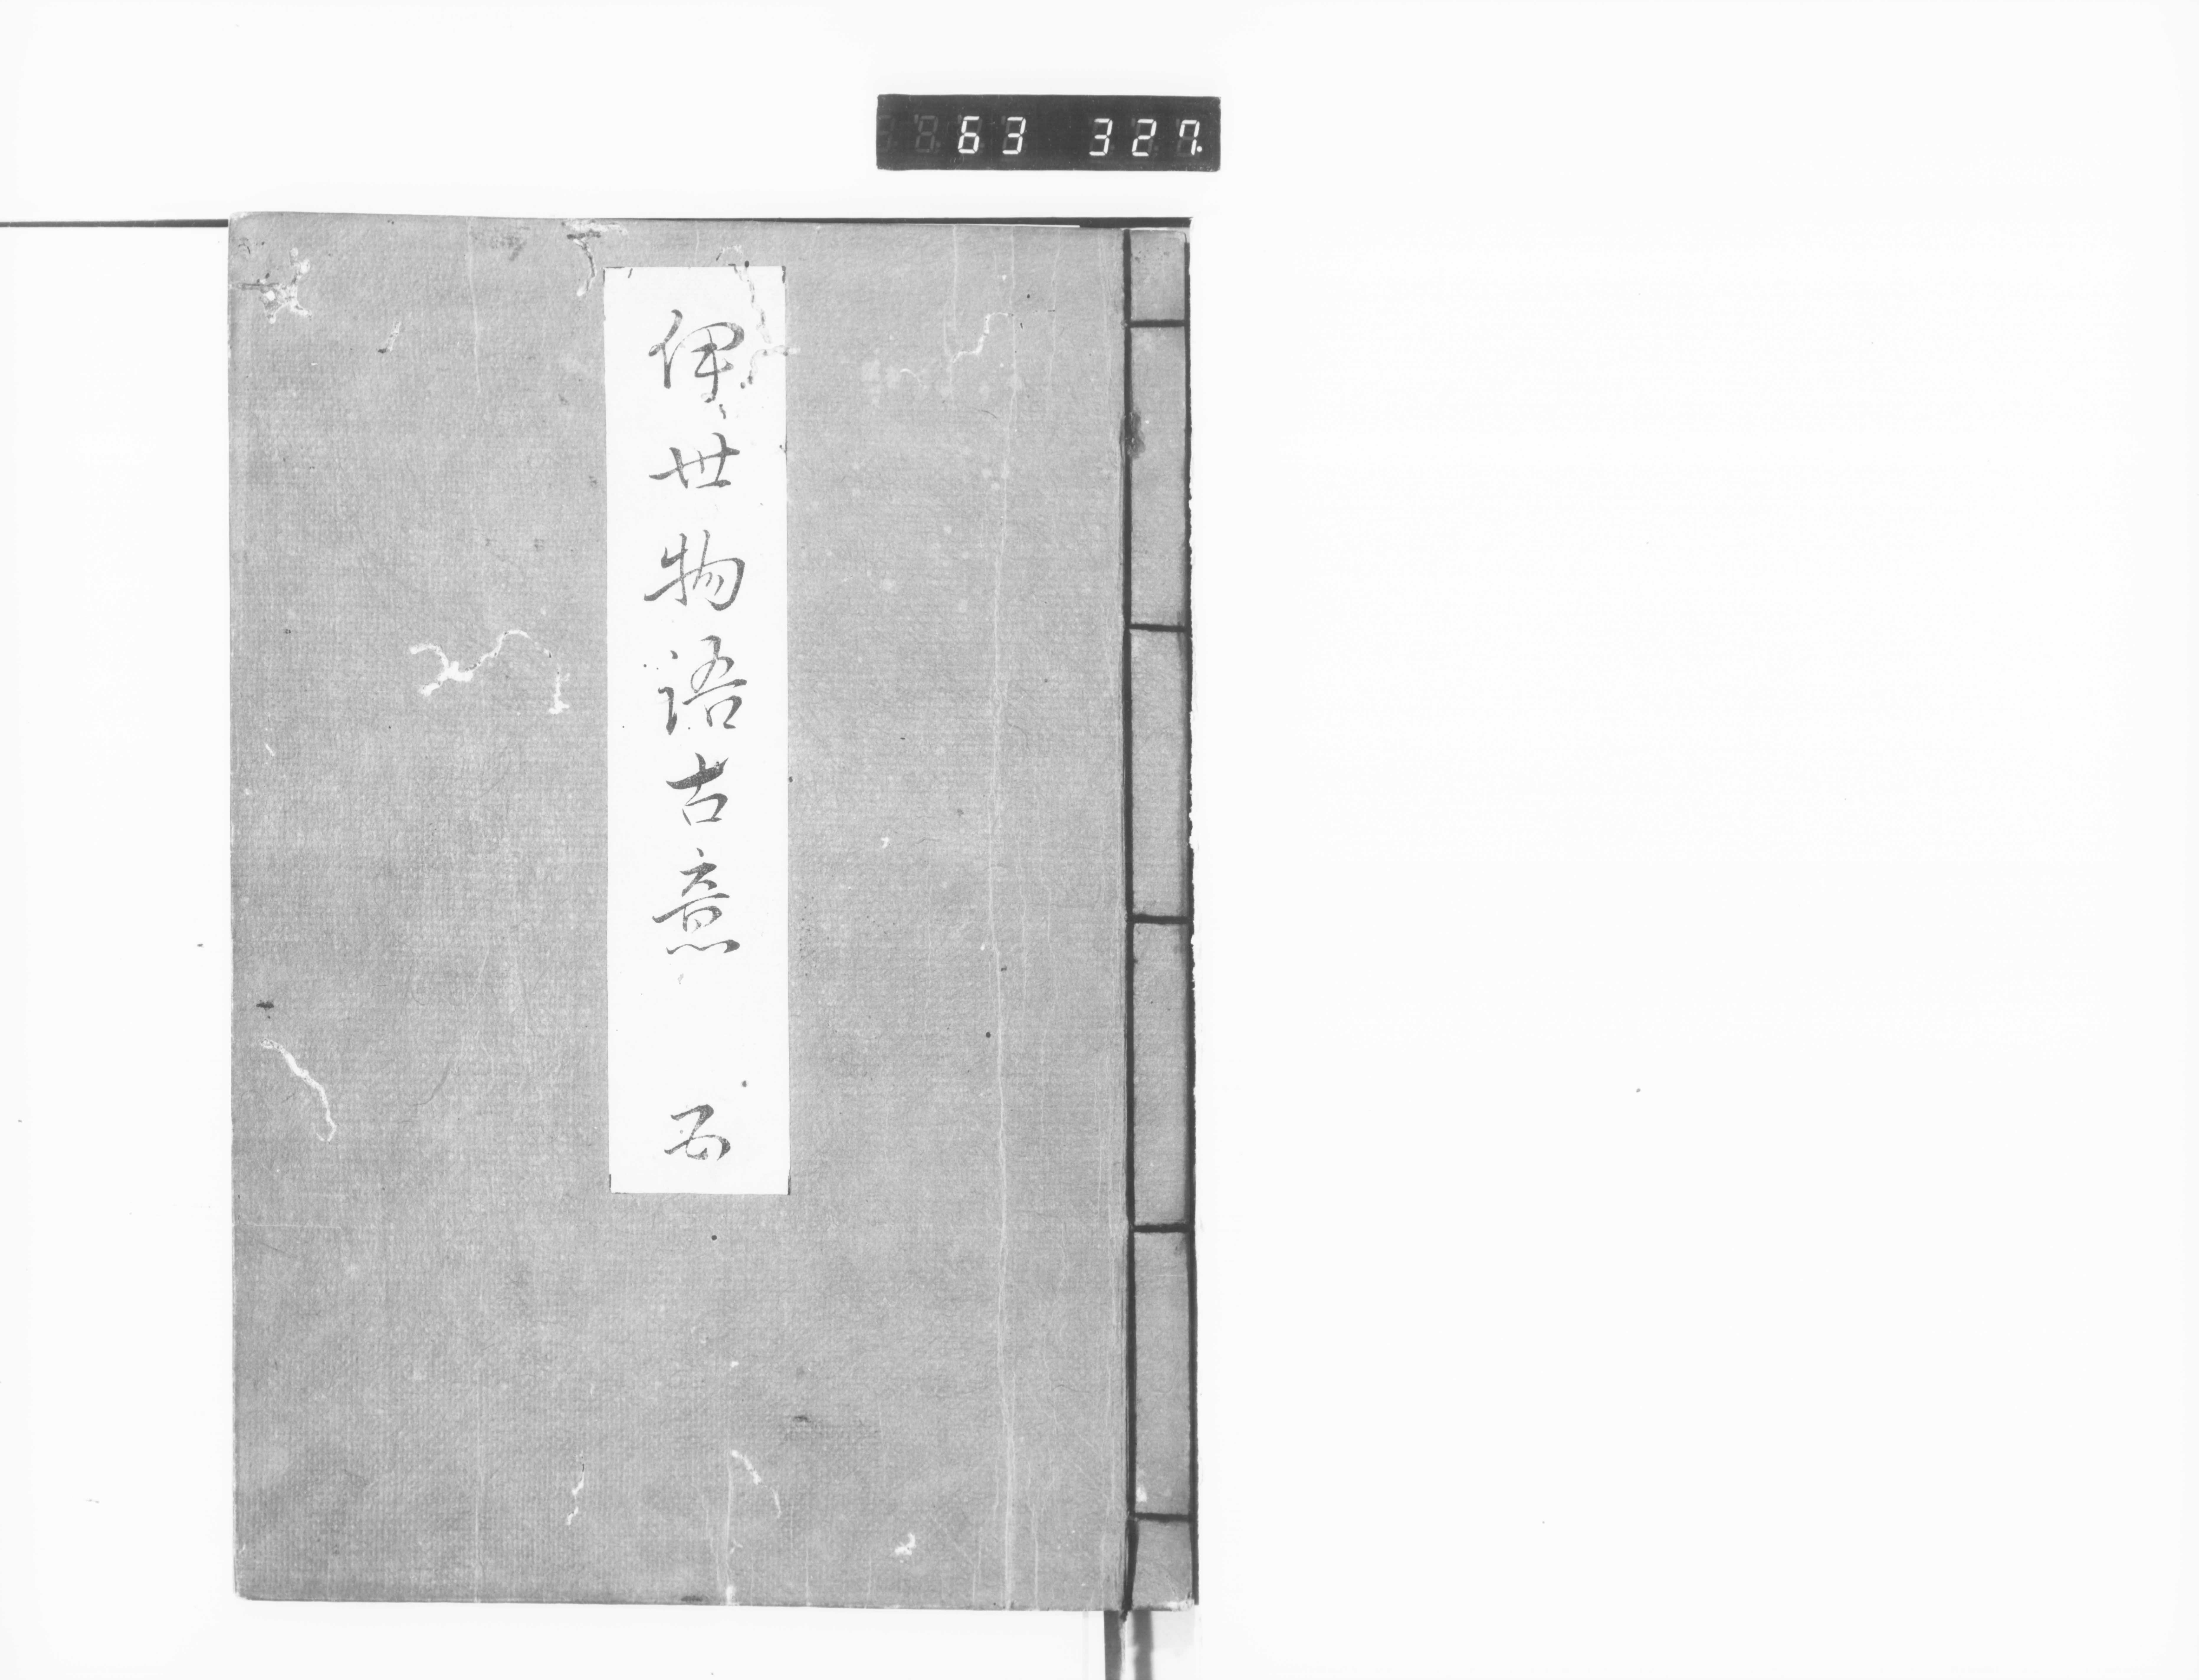 63 327.
伊世物語古意 五